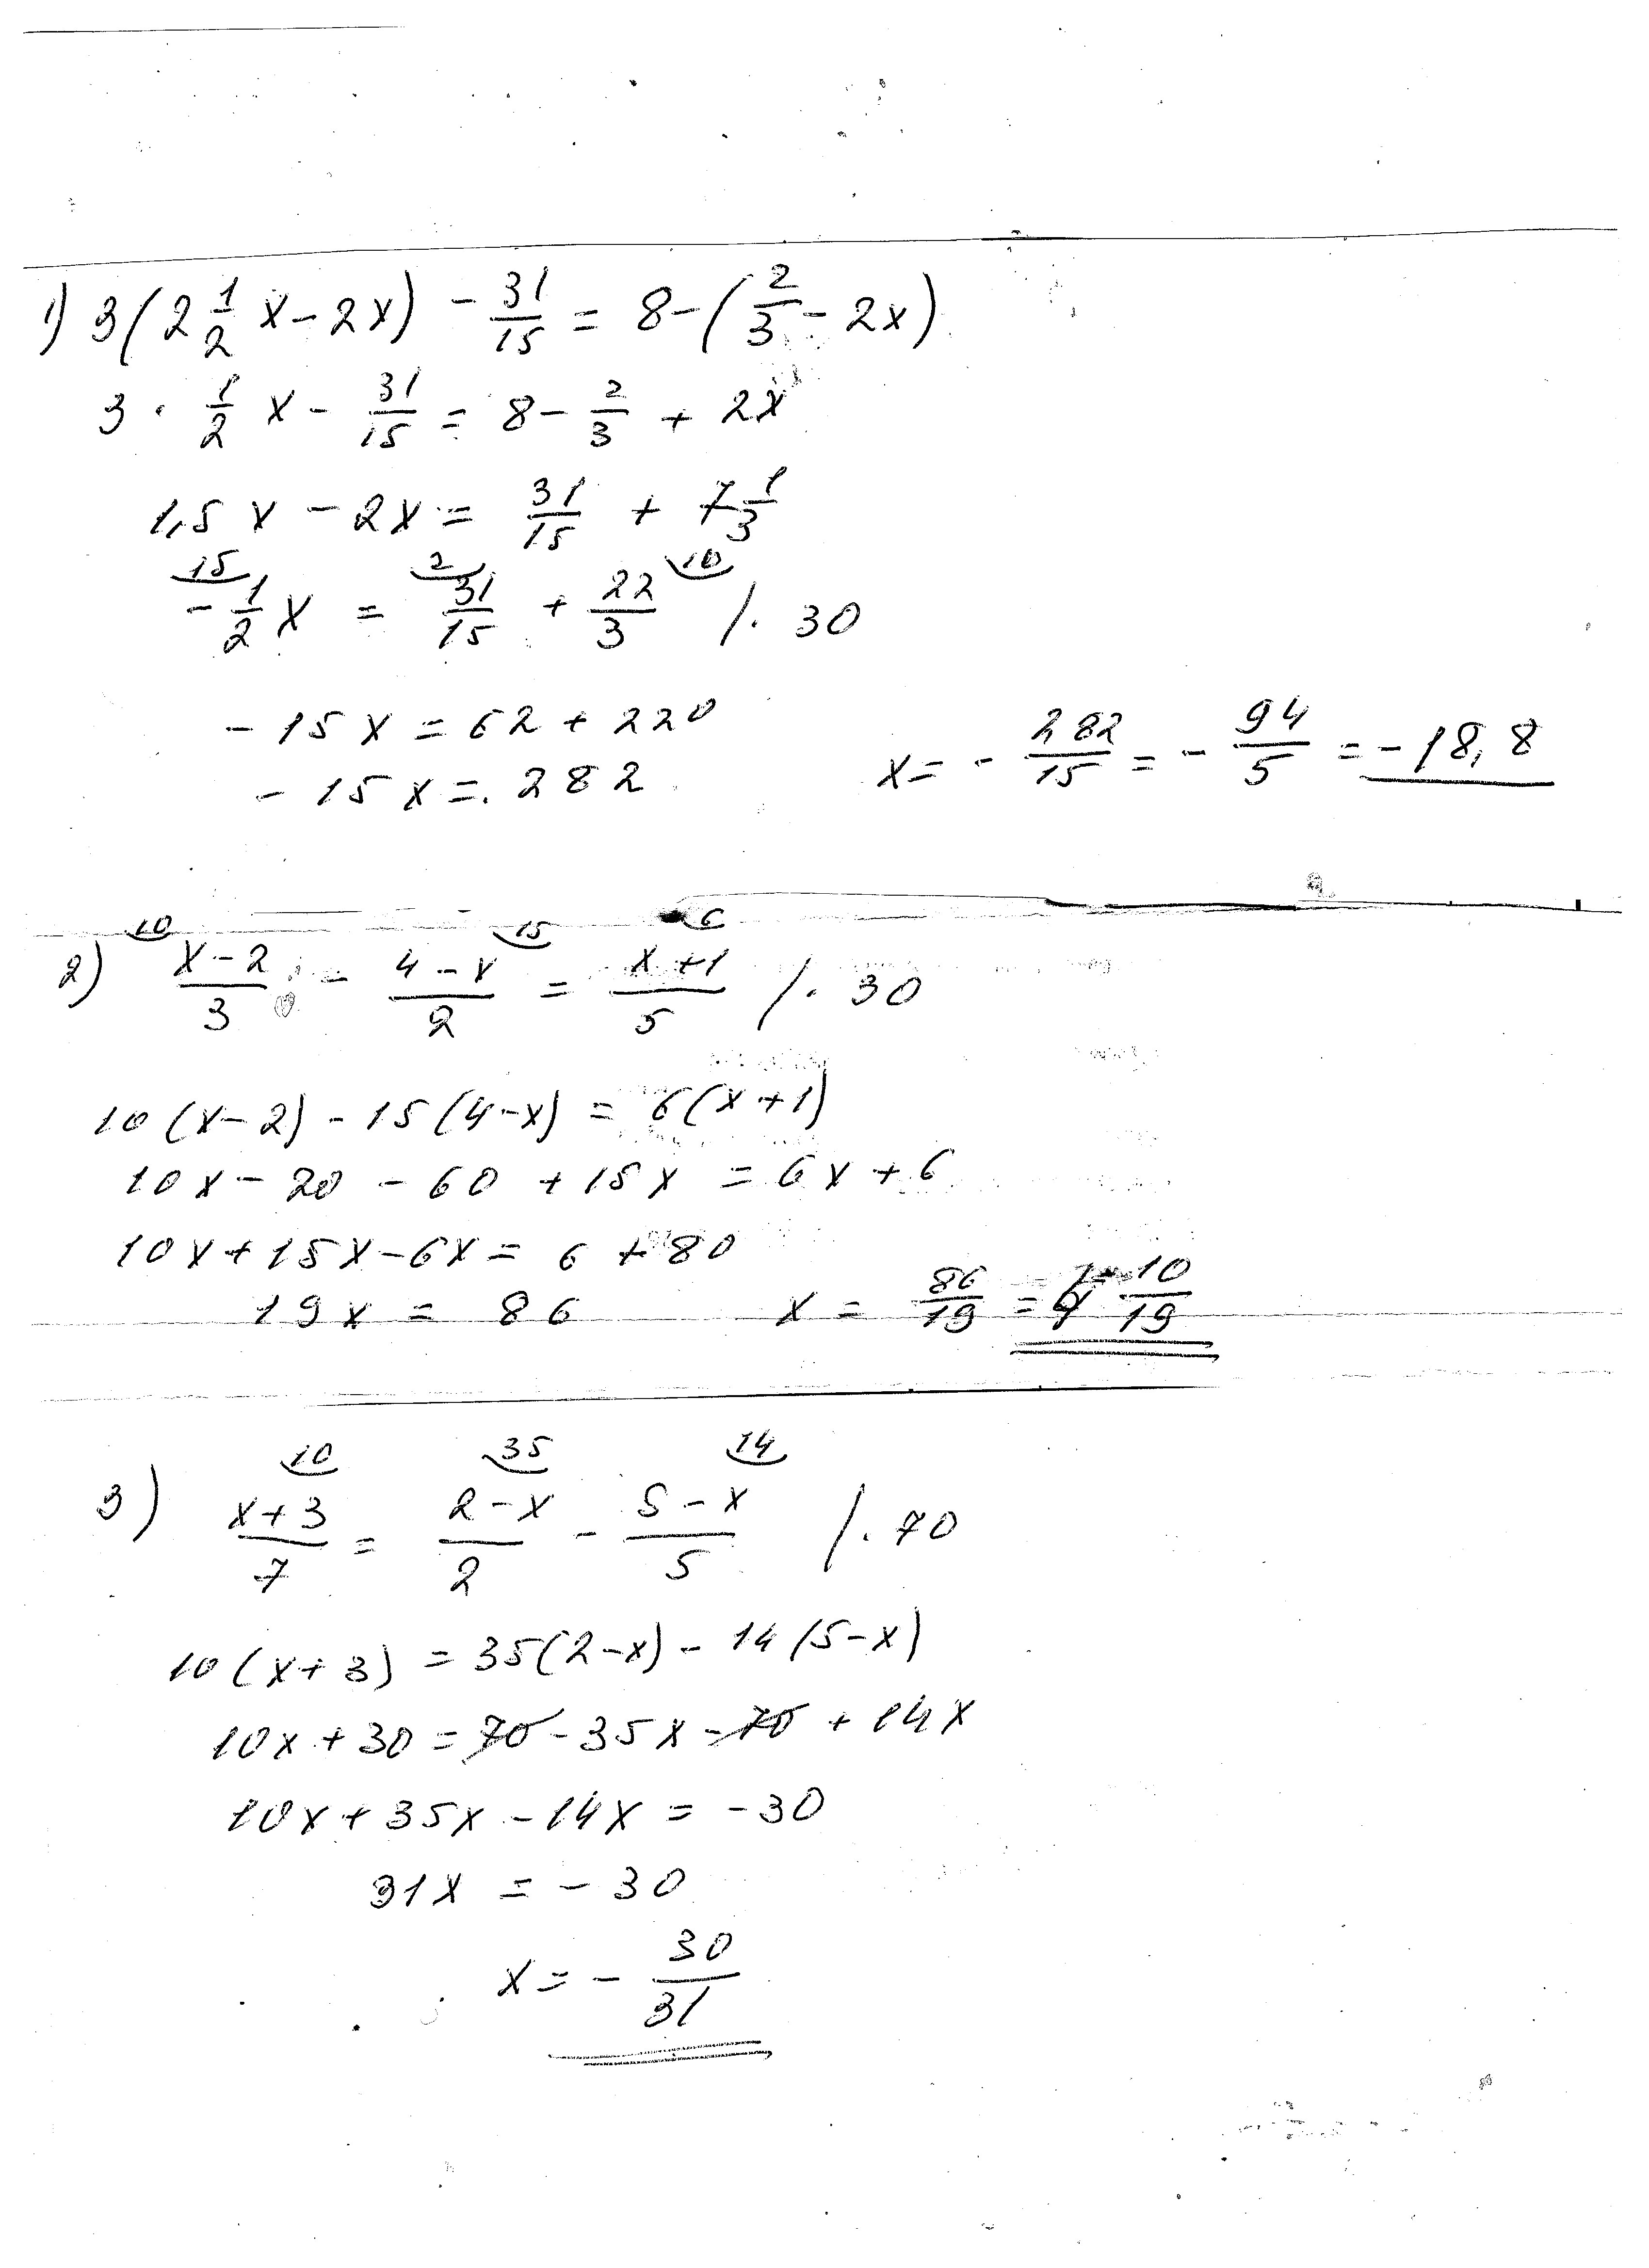 1) 3(2 1/2 x - 2x) - 31/15 = 8 - (2/3 - 2x)
3 · 1/2 x - 31/15 = 8 - 2/3 + 2x
1,5x - 2x = 31/15 + 7 1/3
15 2 10
- 1/2 x = 31/15 + 22/3 /· 30
- 15x = 62 + 220
- 15x = 282
x = - 282/15 = - 94/5 = - 18,8
10 15 6
2) x-2/3 - 4-x/2 = x+1/5 /· 30
10(x-2) - 15(4-x) = 6(x+1)
10x - 20 - 60 + 15x = 6x + 6
10x + 15x - 6x = 6 + 80
19x = 86 x = 86/19 = 4 10/19
10 35 14
3) x+3/7 = 2-x/2 - 5-x/5 /· 70
10(x+3) = 35(2-x) - 14(5-x)
10x + 30 = 70 - 35x - 70 + 14x
10x + 35x - 14x = -30
31x = - 30
x = - 30/31